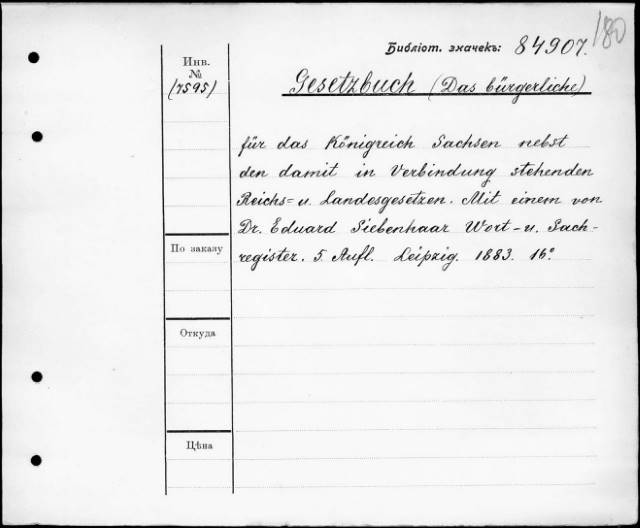 180
Библіот. значекъ: 84907.
Инв.
№
(7595)
Gesetzbuch (Das bürgerliche)
für das Königreich Sachsen nebst
den damit in Verbindung stehenden
Reichs= u. Landesgesetzen. Mit einem von
Dr. Eduard Siebenhaar Wort- u. Sach-
register. 5. Aufl. Leipzig. 1883. 16°
По заказу
Откуда
Цѣна